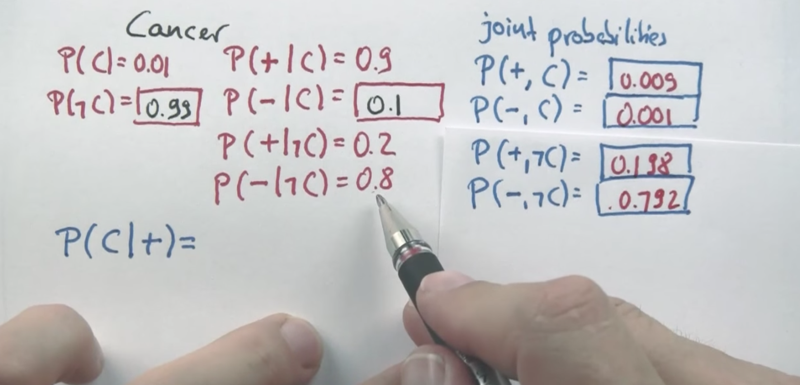 Cancer
P(C)=0.01
P(¬C)=0.99
P(+|C)=0.9
P(-|C)=0.1
P(+|¬C)=0.2
P(-|¬C)=0.8
P(C|+)=
joint probabilities
P(+,C)=0.009
P(-,C)=0.001
P(+,¬C)=0.198
P(-,¬C)=0.792